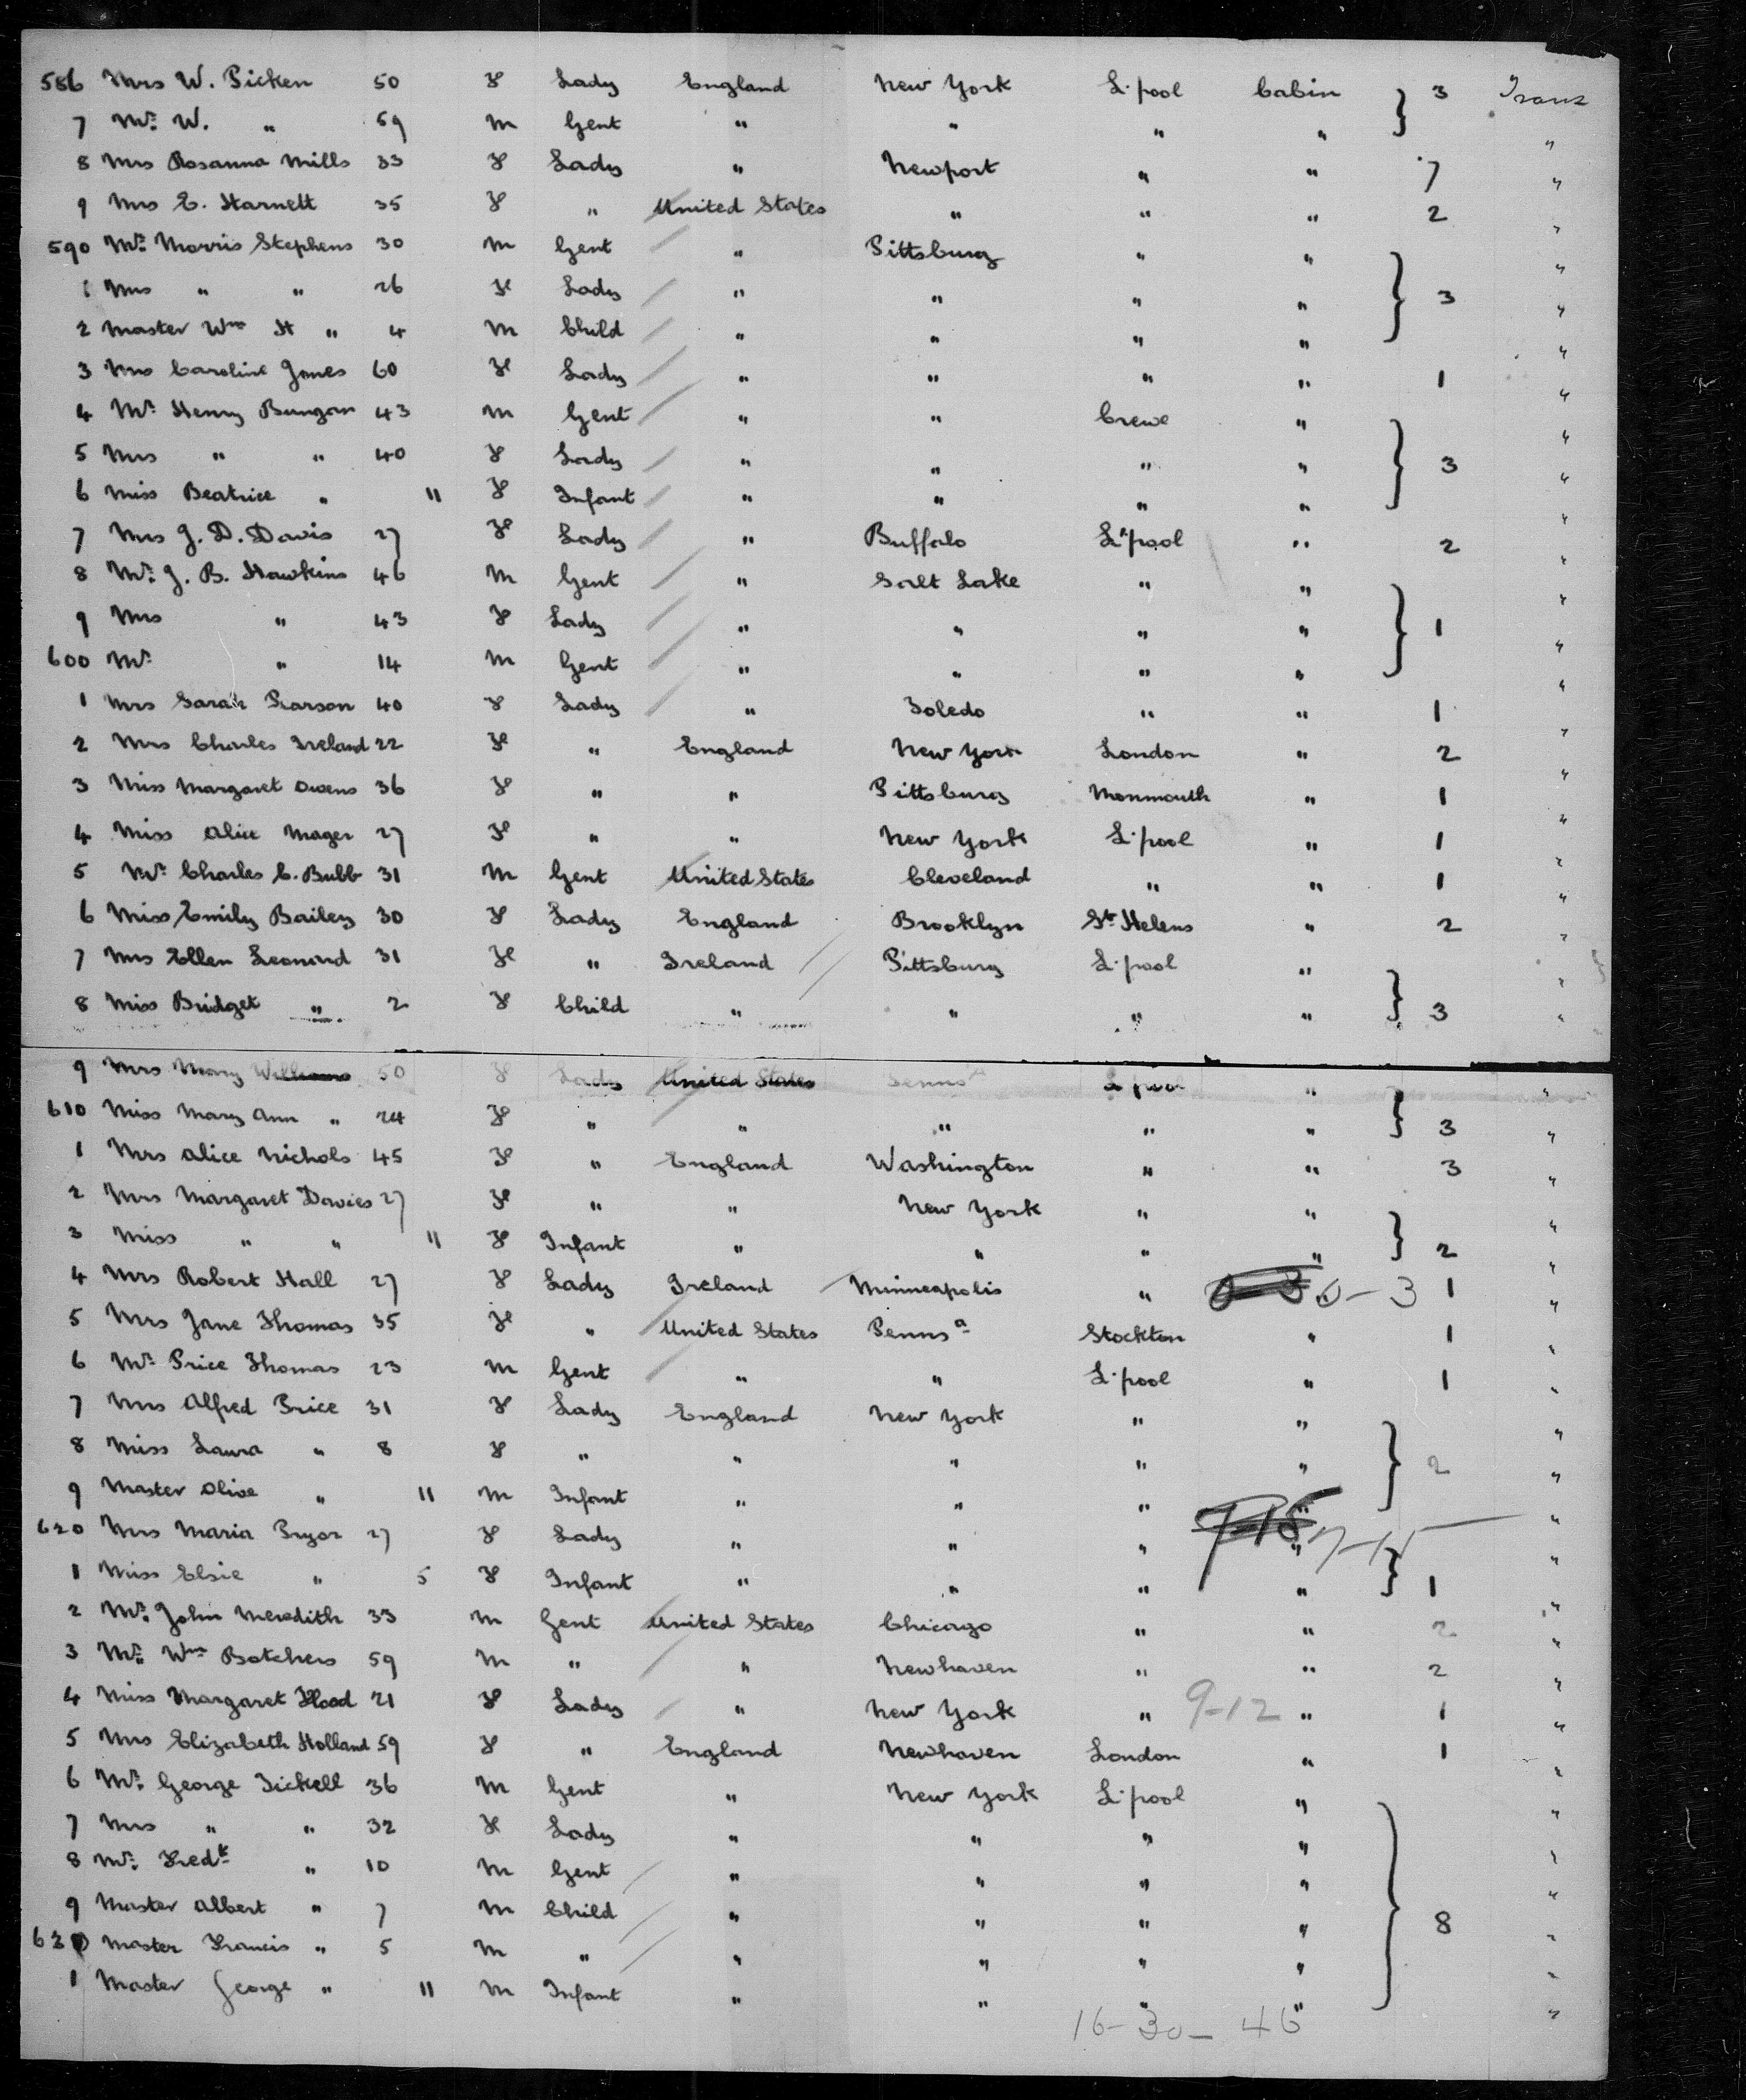 586 Mrs W. Picken 50 F Lady England New York L'pool Cabin } 3 Trans
7 Mr. W. " 59 m Gent " " " " "
8 Mrs Rosanna Mills 33 F Lady " Newport " " 7 "
9 Mrs E. Harnett 35 F " United States " " " 2 "
590 Mr. Morris Stephens 30 m Gent " Pittsburg " " "
1 Mrs " " 26 F Lady " " " " } 3 "
2 Master Wm H " 4 m Child " " " " "
3 Mrs Caroline Jones 60 F Lady " " " " 1 "
4 Mr. Henry Bungan 43 m Gent " " Crewe " "
5 Mrs " " 40 F Lady " " " " } 3 "
6 Miss Beatrice " 11 F Infant " " " " "
7 Mrs J. D. Davis 27 F Lady " Buffalo L'pool " 2 "
8 Mr. J. B. Hawkins 46 m Gent " Salt Lake " " "
9 Mrs " 43 F Lady " " " " } 1 "
600 Mr. " 14 m Gent " " " " "
1 Mrs Sarah Pearson 40 F Lady " Toledo " " 1 "
2 Mrs Charles Ireland 22 F " England New York London " 2 "
3 Miss Margaret Owens 36 F " " Pittsburg Monmouth " 1 "
4 Miss Alice Mager 27 F " " New York L'pool " 1 "
5 Mr. Charles C. Bubb 31 m Gent United States Cleveland " " 1 "
6 Miss Emily Bailey 30 F Lady England Brooklyn St Helens " 2 "
7 Mrs Ellen Leonard 31 F " Ireland Pittsburg L'pool " "
8 Miss Bridget " 2 F Child " " " " } 3 "
9 Mrs Mary Williams 50 F Lady United States Pennsa L'pool " "
610 Miss Mary Ann " 24 F " " " " " } 3 "
1 Mrs Alice Nichols 45 F " England Washington " " 3 "
2 Mrs Margaret Davies 27 F " " New York " " "
3 Miss " " 11 F Infant " " " " } 2 "
4 Mrs Robert Hall 27 F Lady Ireland Minneapolis " 0-3 1 "
5 Mrs Jane Thomas 35 F " United States Pennsa Stockton " 1 "
6 Mr. Price Thomas 23 m Gent " " L'pool " 1 "
7 Mrs Alfred Price 31 F Lady England New York " " "
8 Miss Laura " 8 F " " " " " } 2 "
9 Master Olive " 11 m Infant " " " " "
620 Mrs Maria Pryor 27 F Lady " " " " 7-15 "
1 Miss Elsie " 5 F Infant " " " " } 1 "
2 Mr. John Meredith 33 m Gent United States Chicago " " 2 "
3 Mr. Wm Botchers 59 m " " Newhaven " " 2 "
4 Miss Margaret Hood 21 F Lady " New York " 9-12 " 1 "
5 Mrs Elizabeth Holland 59 F " England Newhaven London " 1 "
6 Mr. George Tickell 36 m Gent " New York L'pool " "
7 Mrs " " 32 F Lady " " " " "
8 Mr. Fredk " 10 m Gent " " " " "
9 Master Albert " 7 m Child " " " " } 8 "
630 Master Francis " 5 m " " " " " "
1 Master George " 11 m Infant " " " " "
16-30-46